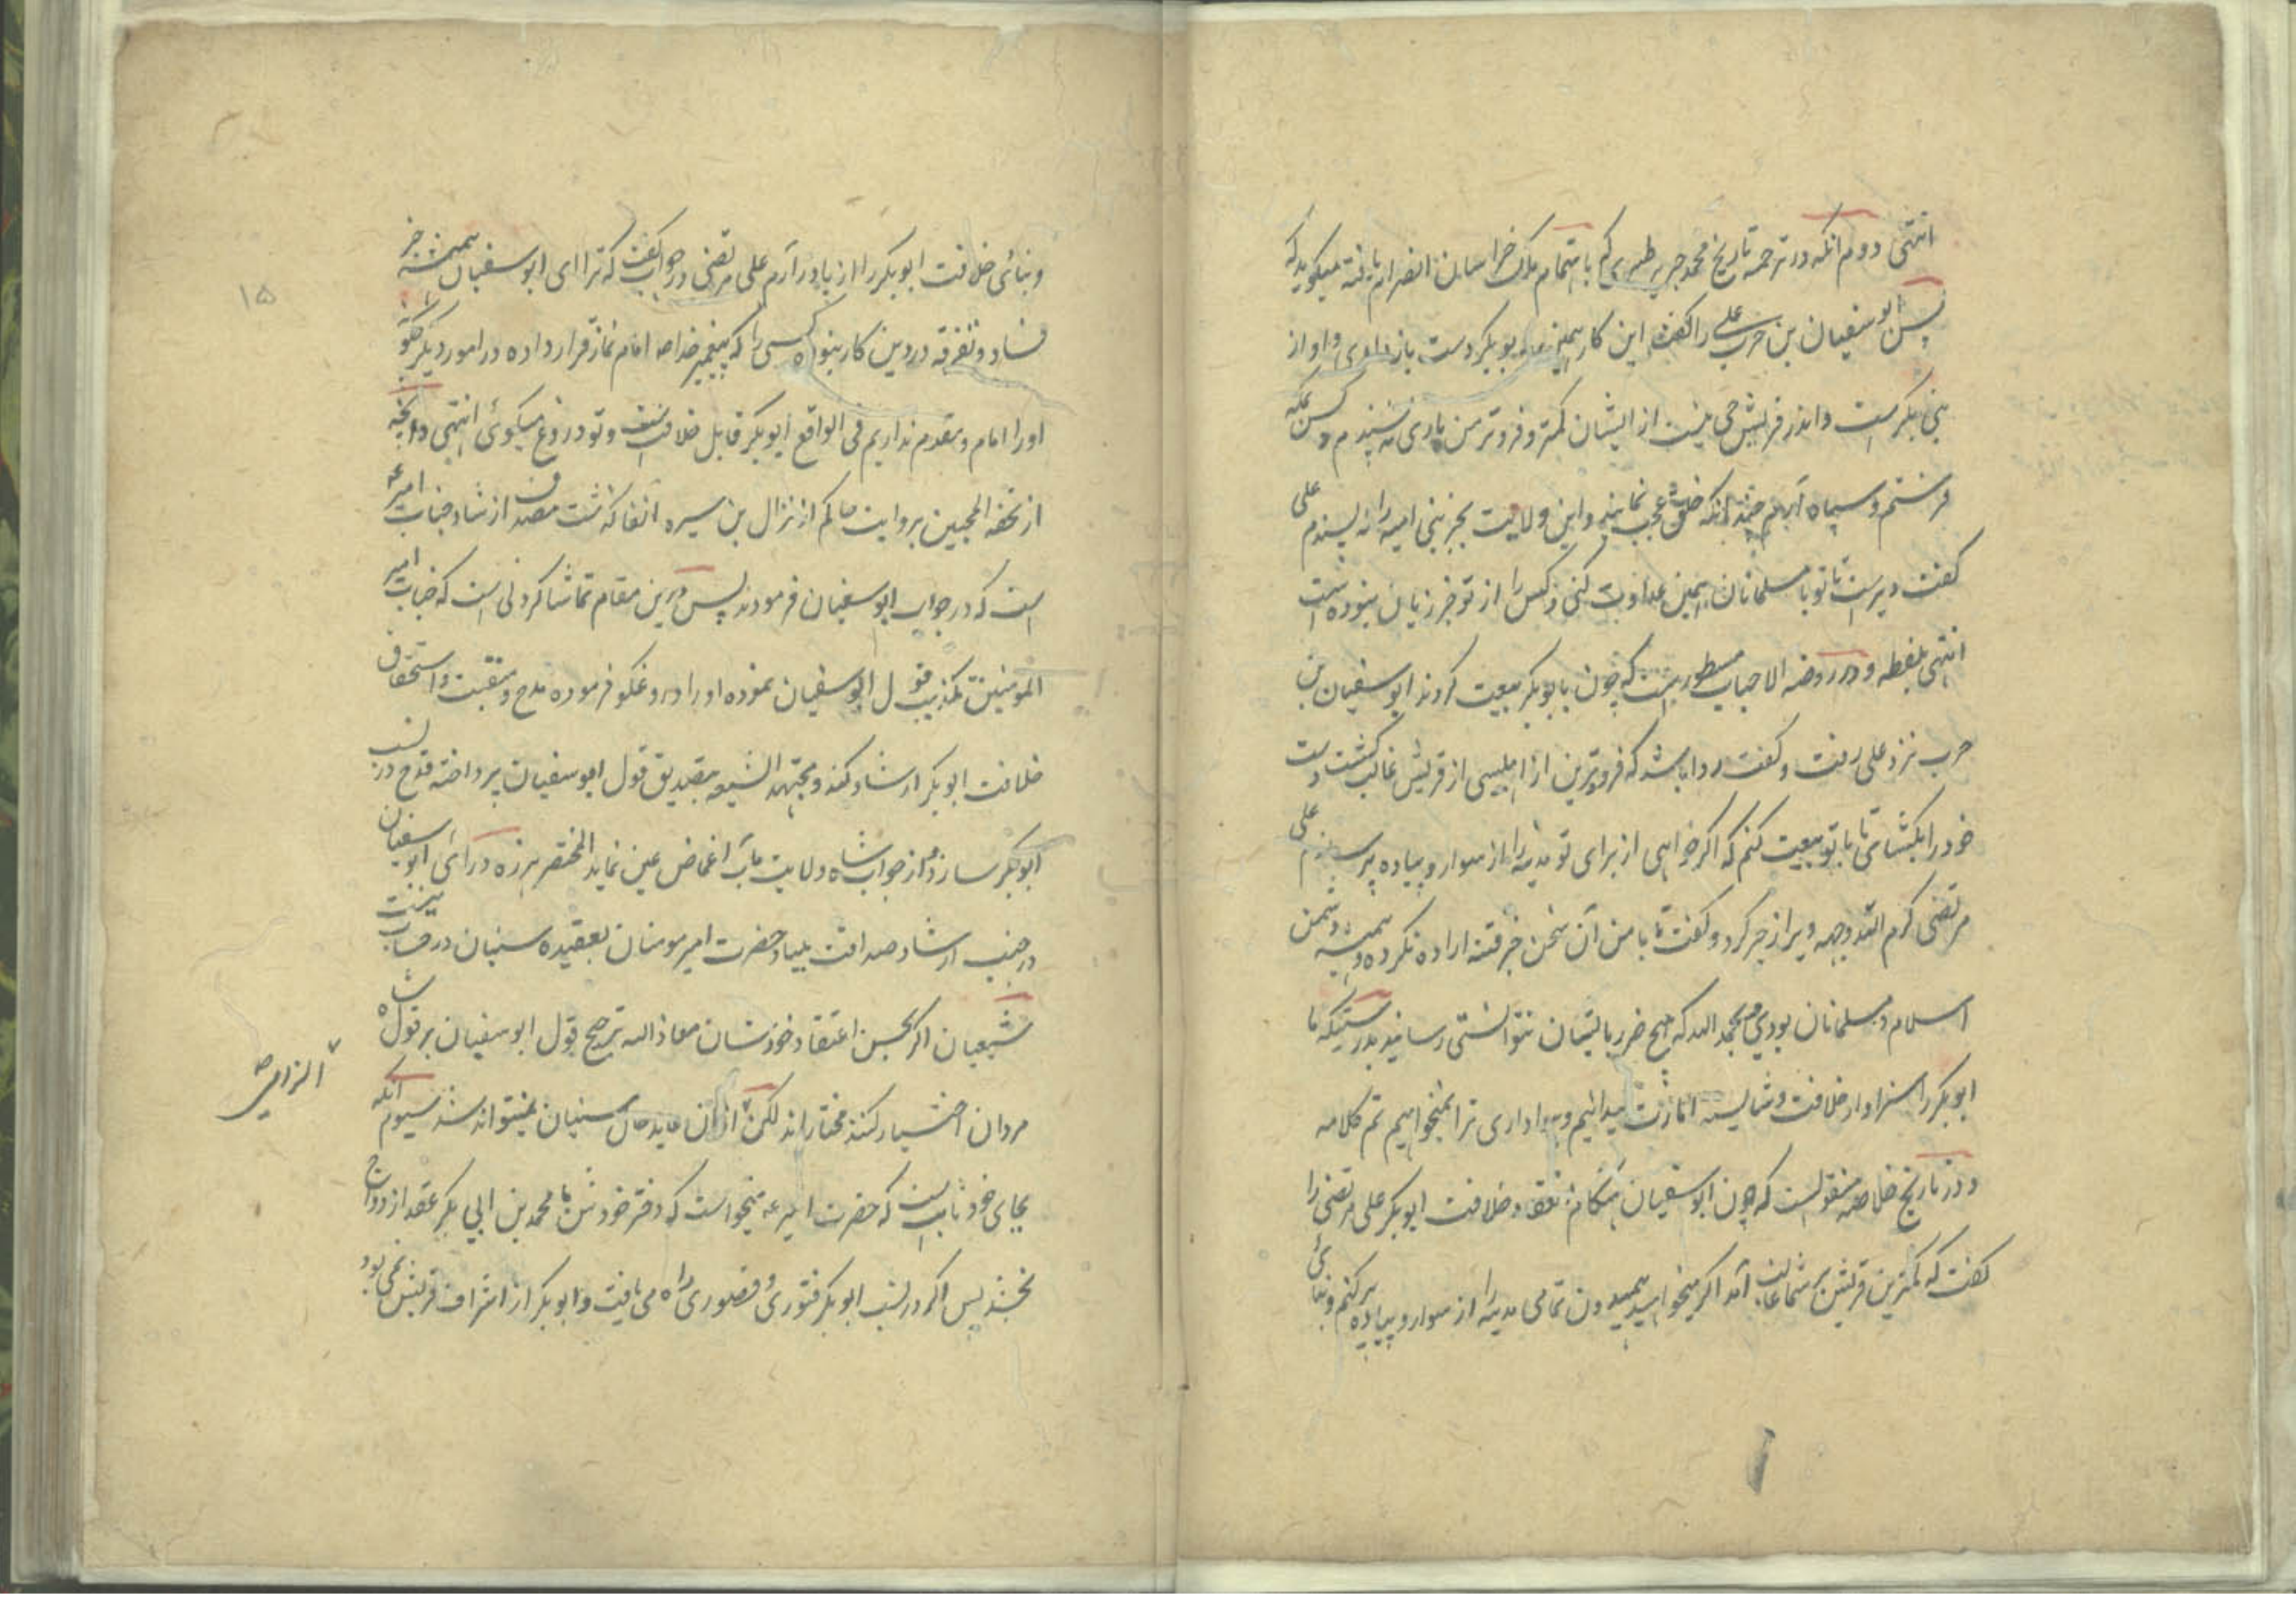 انتهی دوم آنکه در ترجمه تاریخ محمد جریر طبری که باهتمام ملک خراسان انصرام یافته میگوید که
پس ابو سفیان بن حرب علی را گفت این کار همین به بوبکر دست باز و او از
بنی بکر است و اندر قریش حی نیست از ایشان کمتر و فروتر من یاری نه پسندم و کس بمکه
فرستم و سپاه آرم چندانکه خلق عجب نمایند و این ولایت بجز بنی امیه را نه پسندم علی
گفت دیر است تا تو با مسلمانان همین عداوت کنی و کس را از تو جز زیان نبوده است
انتهی بلفظه و در روضه الاحباب مسطور است که چون با ابوبکر بیعت کردند ابو سفیان بن
حرب نزد علی رفت و گفت روا باشد که فروترین از قریش غالب گشت دست
خود را بگشای تا با تو بیعت کنم که اگر خواهی از برای تو مدینه را از سوار و پیاده پر سازم علی
مرتضی کرم الله وجهه ویرا زجر کرد و گفت تا با من آن سخن جز فتنه اراده نکرده و همیشه دشمن
اسلام و مسلمانان بودی و بحمد الله که هیچ ضرر بایشان نتوانستی رسانید بدرستیکه ما
ابوبکر را سزاوار خلافت و شایسته امارت میدانیم و هواداری ترا نمیخواهیم تم کلامه
و در تاریخ خلاصه منقولست که چون ابو سفیان هنگام خلافت ابوبکر علی مرتضی را
گفت که کمترین قریش بر شما غالب آمد اگر میخواهید همیدون تمامی مدینه را از سوار و پیاده پر کنم و بنای
و بنائی خلافت ابوبکر را از پا در آرم علی مرتضی در جواب گفت که ترا ای ابو سفیان همیشه جز
فساد و تفرقه در دین کار نبود کسی را که پیغمبر خدا صه امام نماز قرار داده در امور دیگر چگونه
او را امام و مقدم نداریم فی الواقع ابوبکر قابل خلافت است و تو دروغ میگوئی انتهی و آنچه
از تحفه المحبین بروایت حاکم از نزال بن سبره آنفا گذشت مصدق ارشاد جناب امیر عه
است که در جواب ابو سفیان فرمودند پس درین مقام تماشا کردنی است که جناب امیر
المومنین تکذیب قول ابو سفیان نموده او را دروغگو فرموده مدح و منقبت و استحقاق
خلافت ابوبکر ارشاد کند و مجتهد الشیعه بتصدیق قول ابو سفیان پرداخته قدح در نسب
ابوبکر سازد و از جواب شاه ولایت مآب اغماض عین نماید المختصر هرزه درائی ابو سفیان
در جنب ارشاد صداقت بنیاد حضرت امیر مومنان بعقیده سنیان در حساب نیست
شیعیان اگر بحسن اعتقاد خودشان معاذ الله ترجیح قول ابو سفیان بر قول شاه
مردان اختیار کنند مختار اند لکن ازان عاید حال سنیان نمیتواند شد سیوم آنکه
بجای خود ثابت است که حضرت امیر عه میخواست که دختر خودش با محمد بن ابی بکر عقد ازدواج
بخشد پس اگر در نسب ابوبکر فتوری و قصوری راه می یافت و ابوبکر از اشراف قریش نمی بود
۱۵